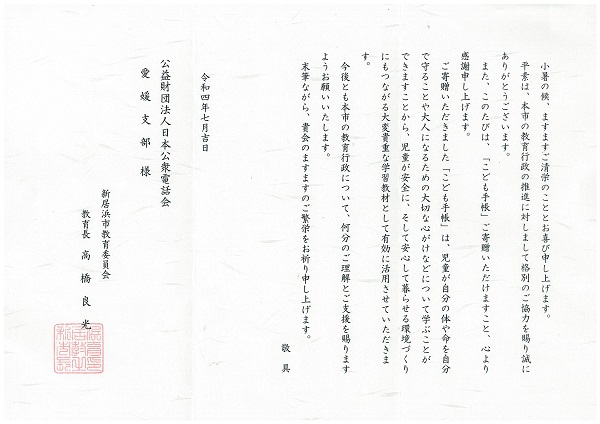 小暑の候、ますますご清栄のこととお喜び申し上げます。
平素は、本市の教育行政の推進に対しまして格別のご協力を賜り誠に
ありがとうございます。
また、このたびは、「こども手帳」ご寄贈いただけますこと、心より
感謝申し上げます。
ご寄贈いただきました「こども手帳」は、児童が自分の体や命を自分
で守ることや大人になるための大切な心がけなどについて学ぶことが
できますことから、児童が安全に、そして安心して暮らせる環境づくり
にもつながる大変貴重な学習教材として有効に活用させていただきま
す。
今後とも本市の教育行政について、何分のご理解とご支援を賜ります
ようお願いいたします。
末筆ながら、貴会のますますのご繁栄をお祈り申し上げます。
敬具
令和四年七月吉日
公益財団法人日本公衆電話会
愛媛支部様
新居浜市教育委員会
教育長 高橋良光